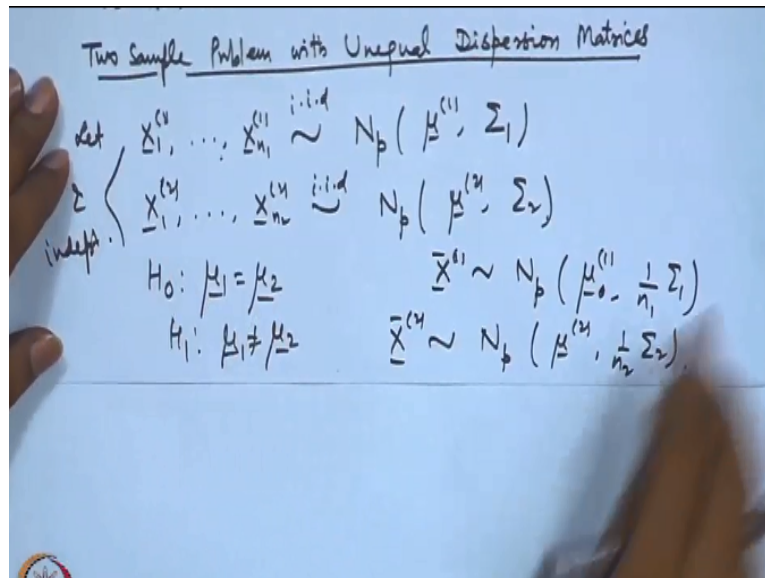 Two Sample Problem with Unequal Dispersion Matrices
Let X₁⁽¹⁾, ..., Xₙ₁⁽¹⁾ i.i.d ~ Nₚ(μ⁽¹⁾, Σ₁)
& indept. X₁⁽²⁾, ..., Xₙ₂⁽²⁾ i.i.d ~ Nₚ(μ⁽²⁾, Σ₂)
H₀: μ₁ = μ₂ X̄⁽¹⁾ ~ Nₚ(μ⁽¹⁾, 1/n₁ Σ₁)
H₁: μ₁ ≠ μ₂ X̄⁽²⁾ ~ Nₚ(μ⁽²⁾, 1/n₂ Σ₂)